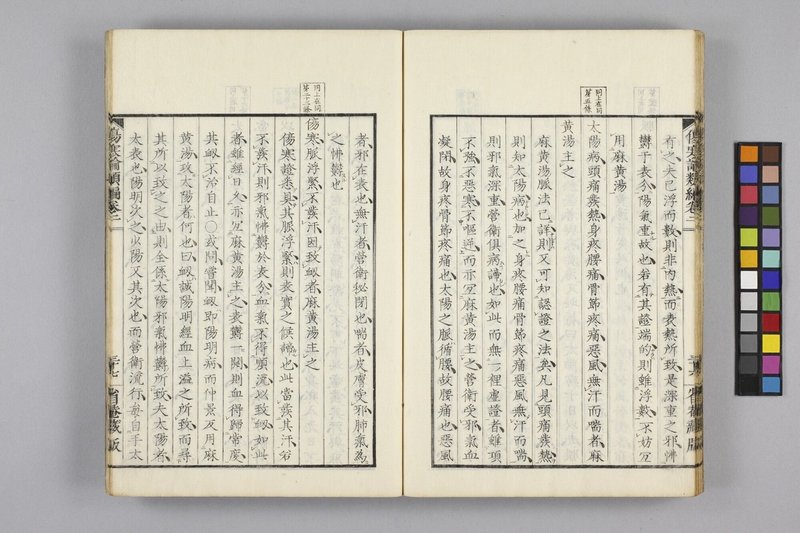 有之夫已浮而數則非內熱而表熱所致是深重之邪怫
欝于表分陽氣重故也若有其證端的則雖浮數不妨宜
用麻黄湯
同上在同第五條
太陽病頭痛發熱身疼腰痛骨節疼痛惡風無汗而喘者麻
黄湯主之
麻黄湯脈法已詳則又可知認證之法矣凡見頭痛發熱
則知太陽病也加之身疼腰痛骨節疼痛惡風無汗而喘
則邪氣深重營衛俱病諦也如此而無一裡虚證者雖項
不強不惡寒不嘔逆而亦宜麻黄湯主之營衛受邪氣血
凝閉故身疼骨節疼痛也太陽之脈循腰故腰痛也惡風
者邪在表也無汗者營衛秘閉也喘者皮膚受邪肺氣為
之怫欝也
同上在同第二十六條
傷寒脈浮緊不發汗因致衄者麻黄湯主之
傷寒證悉具其脈浮緊則表實之候諦也此當發其汗若
不發汗則邪氣怫欝於表分血氣不得順流以致衄如此
者雖經日久亦宜麻黄湯主之表欝一開則血得歸常度
其衄不治自止〇或問嘗聞衄即陽明病而仲景反用麻
黄湯攻太陽者何也曰衄誠陽明經血上溢之所致而尋
其所以致之之由則全係太陽邪氣怫欝所致夫太陽者
太表也陽明次之少陽又其次也而營衛流行每自手太
傷寒論類編卷二